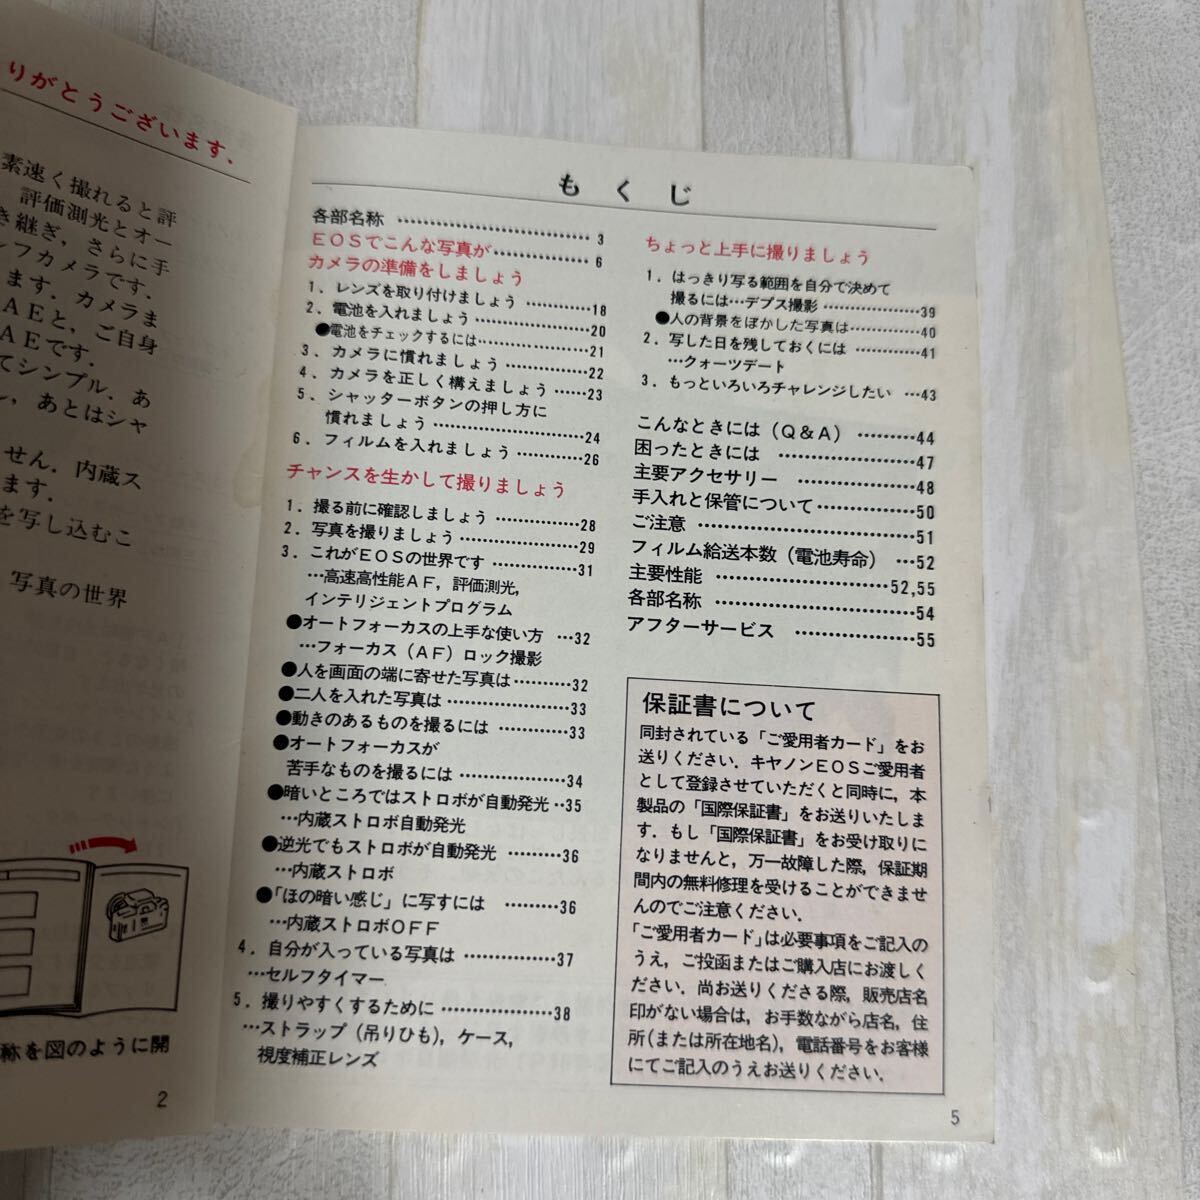 りがとうございます.
素速く撮れると評
評価測光とオー
き継ぎ，さらに手
フカメラです．
ます．カメラま
ＡＥと，ご自身
ＡＥです．
てシンプル．あ
し，あとはシャ
せん．内蔵ス
ます．
を写し込むこ
写真の世界
称を図のように開
2
もくじ
各部名称 ……………………… 3
ＥＯＳでこんな写真が…………… 6
カメラの準備をしましょう
１．レンズを取り付けましょう …………18
２．電池を入れましょう ………………20
●電池をチェックするには………………21
３．カメラに慣れましょう ……………22
４．カメラを正しく構えましょう ……23
５．シャッターボタンの押し方に
慣れましょう ……………………24
６．フィルムを入れましょう …………26
チャンスを生かして撮りましょう
１．撮る前に確認しましょう …………28
２．写真を撮りましょう ………………29
３．これがＥＯＳの世界です …………31
…高速高性能ＡＦ，評価測光，
インテリジェントプログラム
●オートフォーカスの上手な使い方 …32
…フォーカス（ＡＦ）ロック撮影
●人を画面の端に寄せた写真は…………32
●二人を入れた写真は …………………33
●動きのあるものを撮るには …………33
●オートフォーカスが
苦手なものを撮るには ………………34
●暗いところではストロボが自動発光 ‥35
…内蔵ストロボ自動発光
●逆光でもストロボが自動発光 ………36
…内蔵ストロボ
●「ほの暗い感じ」に写すには ………36
…内蔵ストロボＯＦＦ
４．自分が入っている写真は ……………37
…セルフタイマー
５．撮りやすくするために ………………38
…ストラップ（吊りひも），ケース，
視度補正レンズ
ちょっと上手に撮りましょう
１．はっきり写る範囲を自分で決めて
撮るには…デプス撮影 ……………39
●人の背景をぼかした写真は……………40
２．写した日を残しておくには …………41
…クォーツデート
３．もっといろいろチャレンジしたい …43
こんなときには（Ｑ＆Ａ） ………44
困ったときには ………………47
主要アクセサリー ………………48
手入れと保管について……………50
ご注意 …………………………51
フィルム給送本数（電池寿命） …52
主要性能 ……………………52,55
各部名称 ………………………54
アフターサービス ………………55
保証書について
同封されている「ご愛用者カード」をお
送りください．キヤノンＥＯＳご愛用者
として登録させていただくと同時に，本
製品の「国際保証書」をお送りいたしま
す．もし「国際保証書」をお受け取りに
なりませんと，万一故障した際，保証期
間内の無料修理を受けることができませ
んのでご注意ください．
「ご愛用者カード」は必要事項をご記入の
うえ，ご投函またはご購入店にお渡しく
ださい．尚お送りくださる際，販売店名
印がない場合は，お手数ながら店名，住
所（または所在地名），電話番号をお客様
にてご記入のうえお送りください．
5